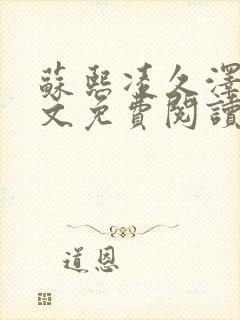 蘇熙凌久澤
文免費閱讀
道恩